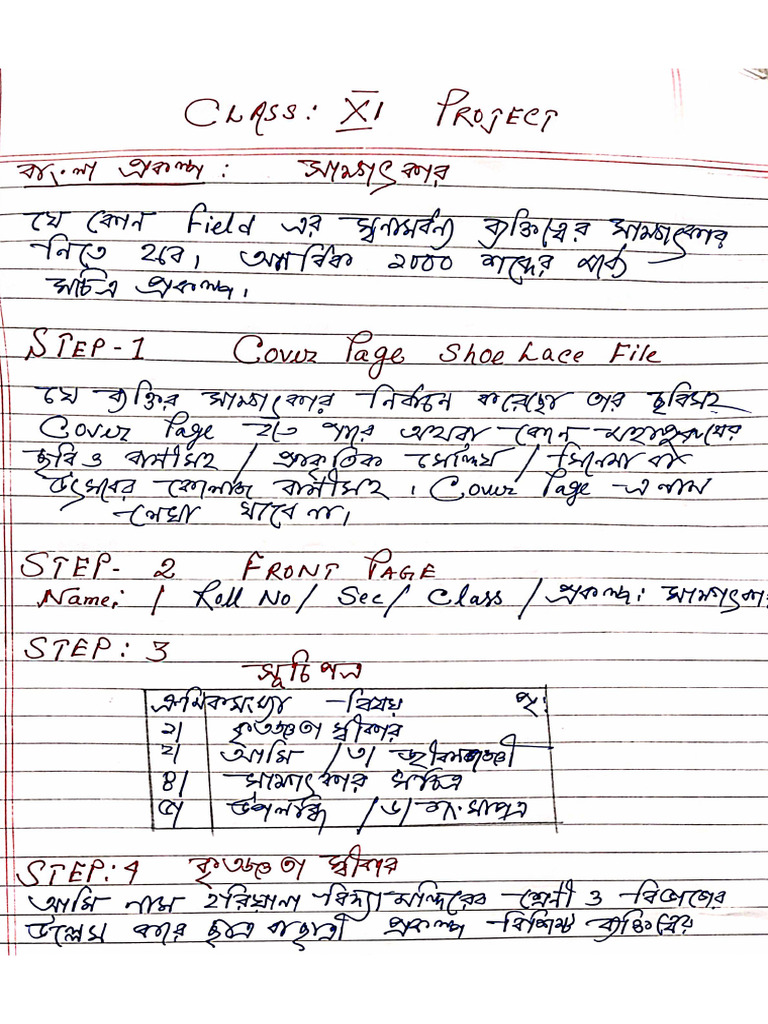 CLASS: XI PROJECT
বাংলা প্রকল্প : সাক্ষাৎকার
যে কোন Field এর স্বনামধন্য ব্যক্তিত্বের সাক্ষাৎকার
নিতে হবে। অনধিক ২০০০ শব্দের মধ্যে
সচিত্র প্রকল্প।
STEP-1 Cover Page Shoe Lace File
যে ব্যক্তির সাক্ষাৎকার নির্বাচন করেছো তার ছবিসহ
Cover Page হতে পারে অথবা কোন মহাপুরুষের
ছবি ও বাণীসহ / প্রাকৃতিক সৌন্দর্য / সিনেমা বা
উৎসবের কোলাজ বাণীসহ। Cover Page -এ নাম
লেখা যাবে না।
STEP- 2 FRONT PAGE
Name: / Roll No / Sec / Class / প্রকল্প: সাক্ষাৎকা
STEP: 3
সূচিপত্র
ক্রমিকসংখ্যা বিষয় পৃ:
১। কৃতজ্ঞতা স্বীকার
২। আমি / ৩। জীবনপঞ্জী
৪। সাক্ষাৎকার সচিত্র
৫। উপলব্ধি / ৬। শংসাপত্র
STEP: 4 কৃতজ্ঞতা স্বীকার
আমি নাম হরিয়াল বিদ্যামন্দিরের শ্রেণী ও বিভাগের
উল্লেখ করে ছাত্র বা ছাত্রী প্রকল্প বিশিষ্ট ব্যক্তিত্বের